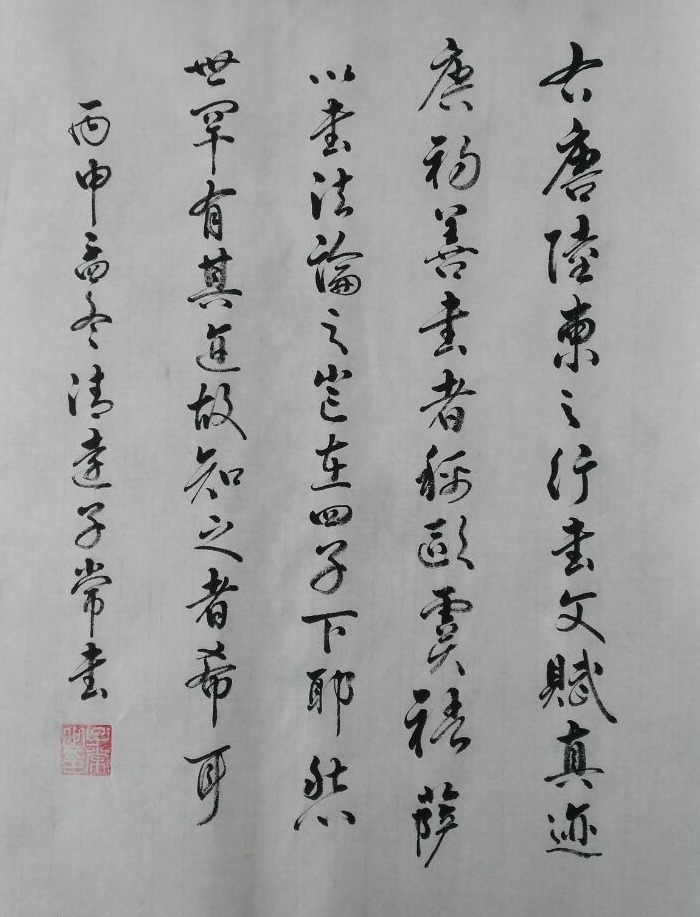 右唐陸柬之行書文賦真迹
唐初善書者稱歐虞褚薛
以書法論之豈在四子下耶然
世罕有其迹故知之者希耳
丙申孟冬清遠子常書